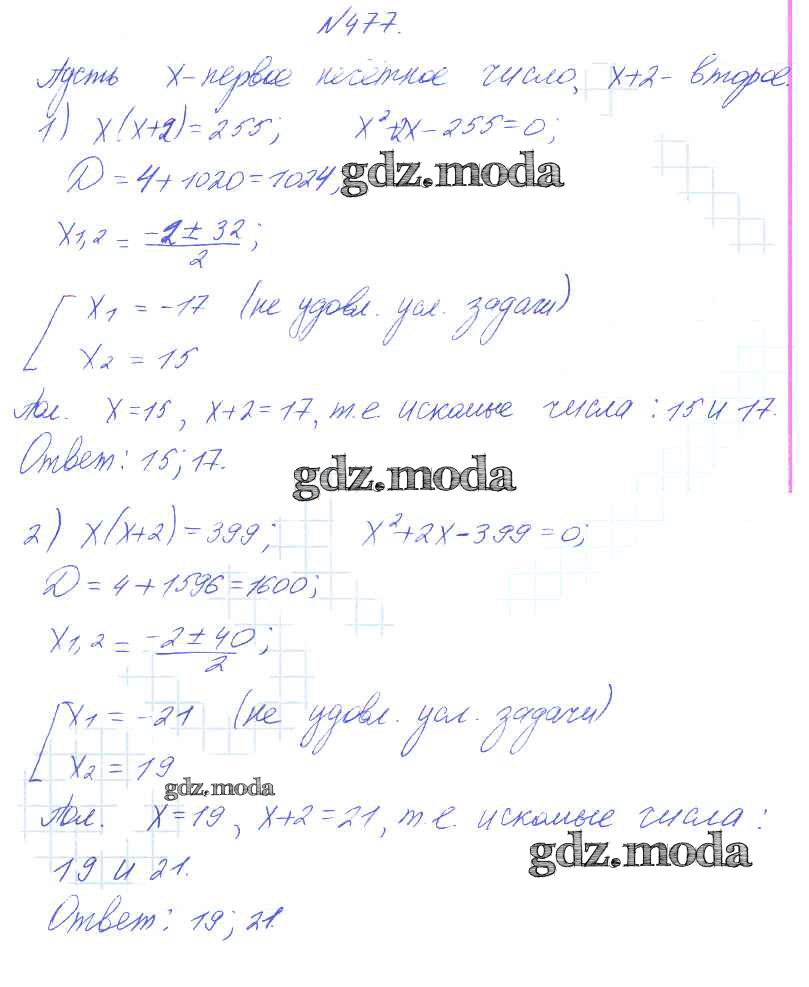 №477.
Пусть х-первое нечётное число, х+2- второе.
1) х(х+2)=255; х²+2х-255=0;
D=4+1020=1024, gdz.moda
х1,2 = -2±32/2;
[ х1 = -17 (не удовл. усл. задачи)
х2 = 15
Пол. х=15, х+2=17, т.е. искомые числа: 15 и 17.
Ответ: 15; 17.
gdz.moda
2) х(х+2)=399; х²+2х-399=0;
D=4+1596=1600;
х1,2 = -2±40/2;
[ х1 = -21 (не удовл. усл. задачи)
х2 = 19
gdz.moda
Пол. х=19, х+2=21, т.е. искомые числа:
19 и 21.
gdz.moda
Ответ: 19; 21.